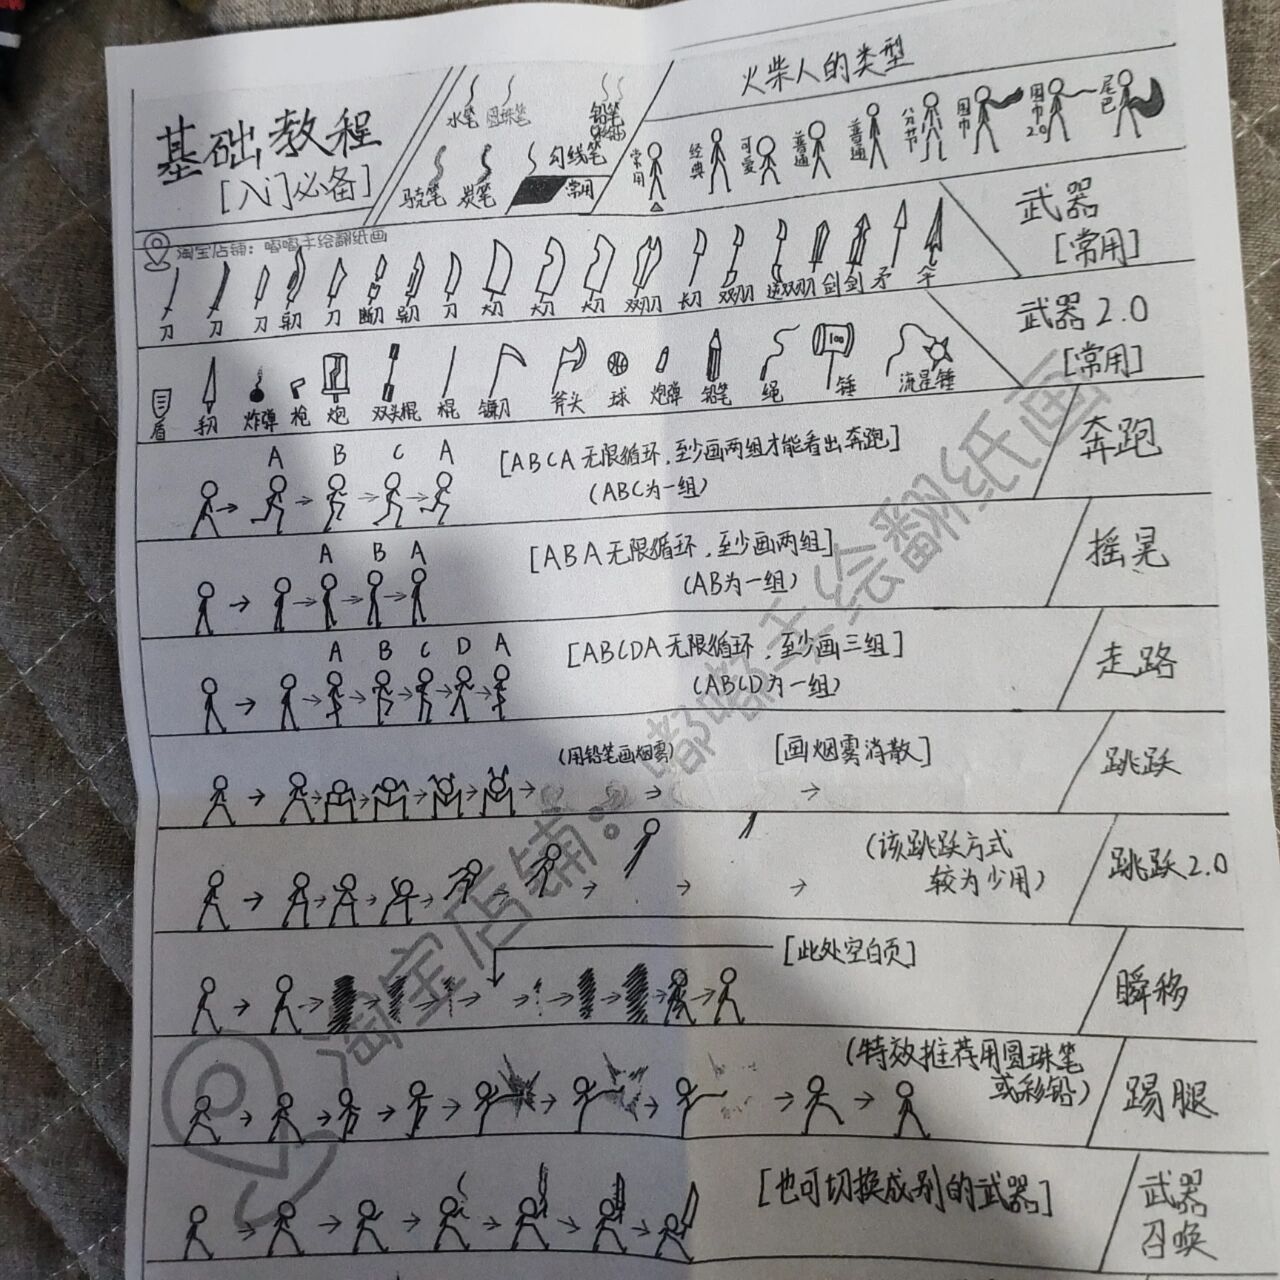 基础教程
[入门必备]
水笔 圆珠笔 铅笔
勾线笔
炭笔 常用
火柴人的类型
常用 经典 可爱 普通 普通 分节 围巾 围巾2.0 尾巴
淘宝店铺：嘟嘟手绘翻纸画
刀 刀 刀 斩刀 刀 断刀 斩刀 刀 大刀 大刀 大刀 双刃刀 长刀 双刃 逆双刃 剑 剑 矛 伞
武器
[常用]
盾 手刃 炸弹 枪 炮 双头棍 棍 镰刀 斧头 球 炮弹 铅笔 绳 锤 流星锤
武器2.0
[常用]
A B C A
[ABCA无限循环，至少画两组才能看出奔跑]
(ABC为一组)
奔跑
A B A
[ABA无限循环，至少画两组]
(AB为一组)
摇晃
A B C D A
[ABCDA无限循环，至少画三组]
(ABCD为一组)
走路
(用铅笔画烟雾)
[画烟雾消散]
跳跃
(该跳跃方式
较为少用)
跳跃2.0
[此处空白页]
瞬移
(特效推荐用圆珠笔
或彩铅)
踢腿
[也可切换成别的武器]
武器
召唤
淘宝店铺：嘟嘟手绘翻纸画